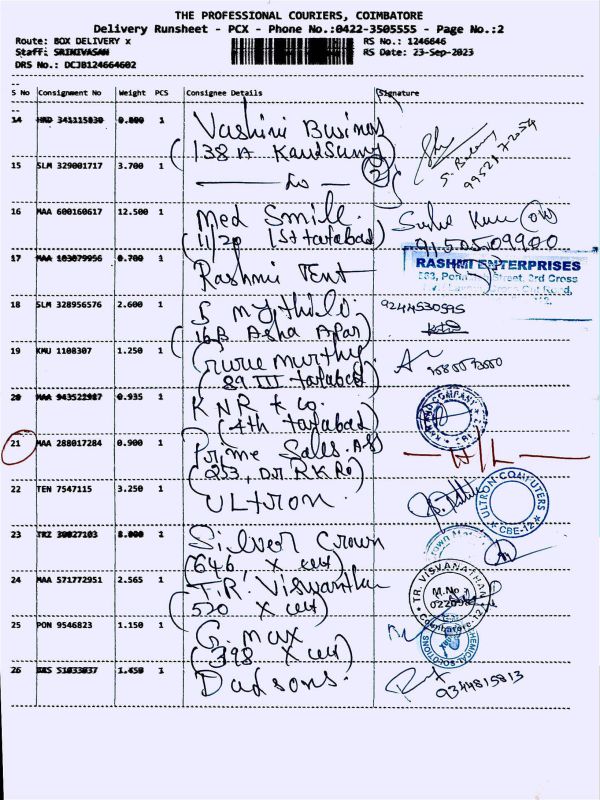 THE PROFESSIONAL COURIERS, COIMBATORE
Delivery Runsheet - PCX - Phone No.:0422-3505555 - Page No.:2
Route: BOX DELIVERY x
RS No.: 1246646
Staff: SRINIVASAN
RS Date: 23-Sep-2023
DRS No.: DCJB124664602
S No Consignment No Weight PCS Consignee Details Signature
14 HRD 341115830 0.800 1 Vashini Business
(138 A
15 SLM 329001717 3.700 1 — do —
16 MAA 600160617 12.500 1 Med Smill.
(11/20 1st tatabad)
17 MAA 103079956 0.700 1 Rashmi Tent
RASHMI ENTERPRISES
18 SLM 328956576 2.600 1 S mythili. 9244530595
(16B Asha Apar)
19 KMU 1108307 1.250 1 Guru Murthy.
(89 III tatabad)
20 MAA 943522987 0.935 1 KNR & Co.
(4th tatabad)
21 MAA 288017284 0.900 1 Prime Sales. A/S
(253, Dr RK Rd)
22 TEN 7547115 3.250 1 ULtron. ULTRON COMPUTERS CBE-12
23 TRZ 30027103 8.000 1 Silver Crown
(646 X cut)
24 MAA 571772951 2.565 1 T.R. Viswanthan TR. VISVANATHAN
M.No
Coimbatore-12
(520 X cut)
25 PON 9546823 1.150 1 G. max
(398 X cut)
26 51033037 1.450 1 Dadsons. 9344815813